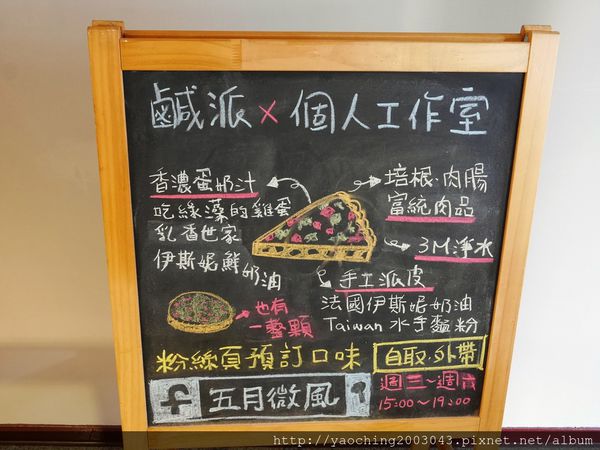 鹹派×個人工作室
香濃蛋奶汁
吃綠藻的雞蛋
乳香世家
伊斯妮鮮奶油
培根、肉腸
富統肉品
3M淨水
手工派皮
法國伊斯妮奶油
Taiwan 水手麵粉
也有
一整顆
粉絲頁預訂口味
自取.外帶
f 五月微風
週三~週六
15:00~19:00
http://yaoching2003043.pixnet.net/album